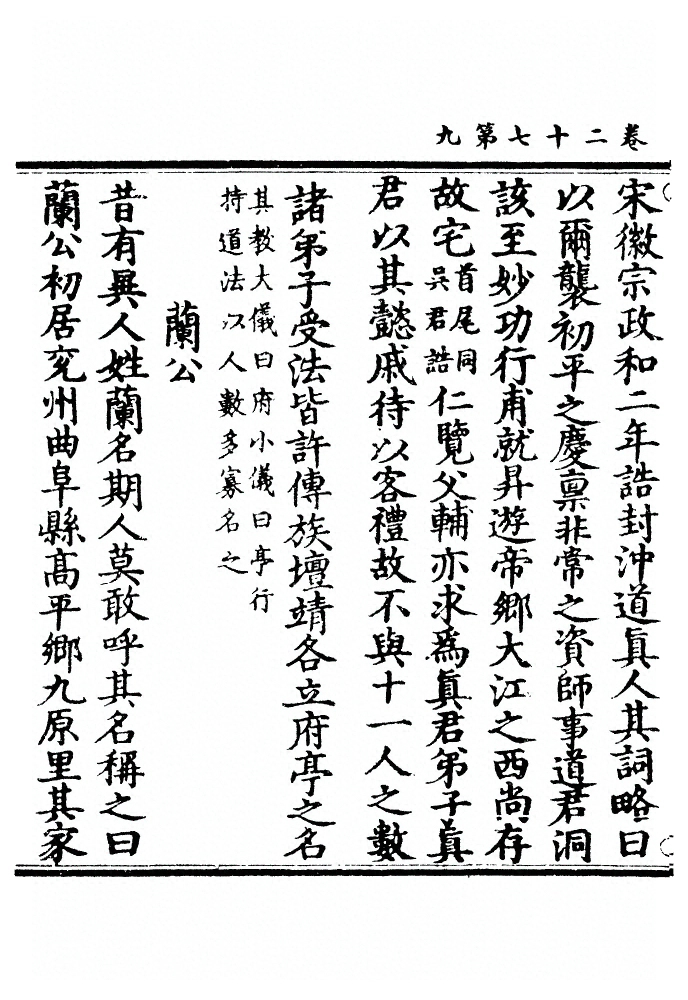 卷二十七第九
宋徽宗政和二年誥封沖道眞人其詞略曰
以爾襲初平之慶禀非常之資師事道君洞
該至妙功行甫就昇遊帝鄉大江之西尚存
故宅首尾同吳君誥仁覽父輔亦求爲眞君弟子眞
君以其懿戚待以客禮故不與十一人之數
諸弟子受法皆許傳族壇靖各立府亭之名
其教大儀曰府小儀曰亭行
持道法以人數多寡名之
蘭公
昔有異人姓蘭名期人莫敢呼其名稱之曰
蘭公初居兖州曲阜縣高平鄉九原里其家